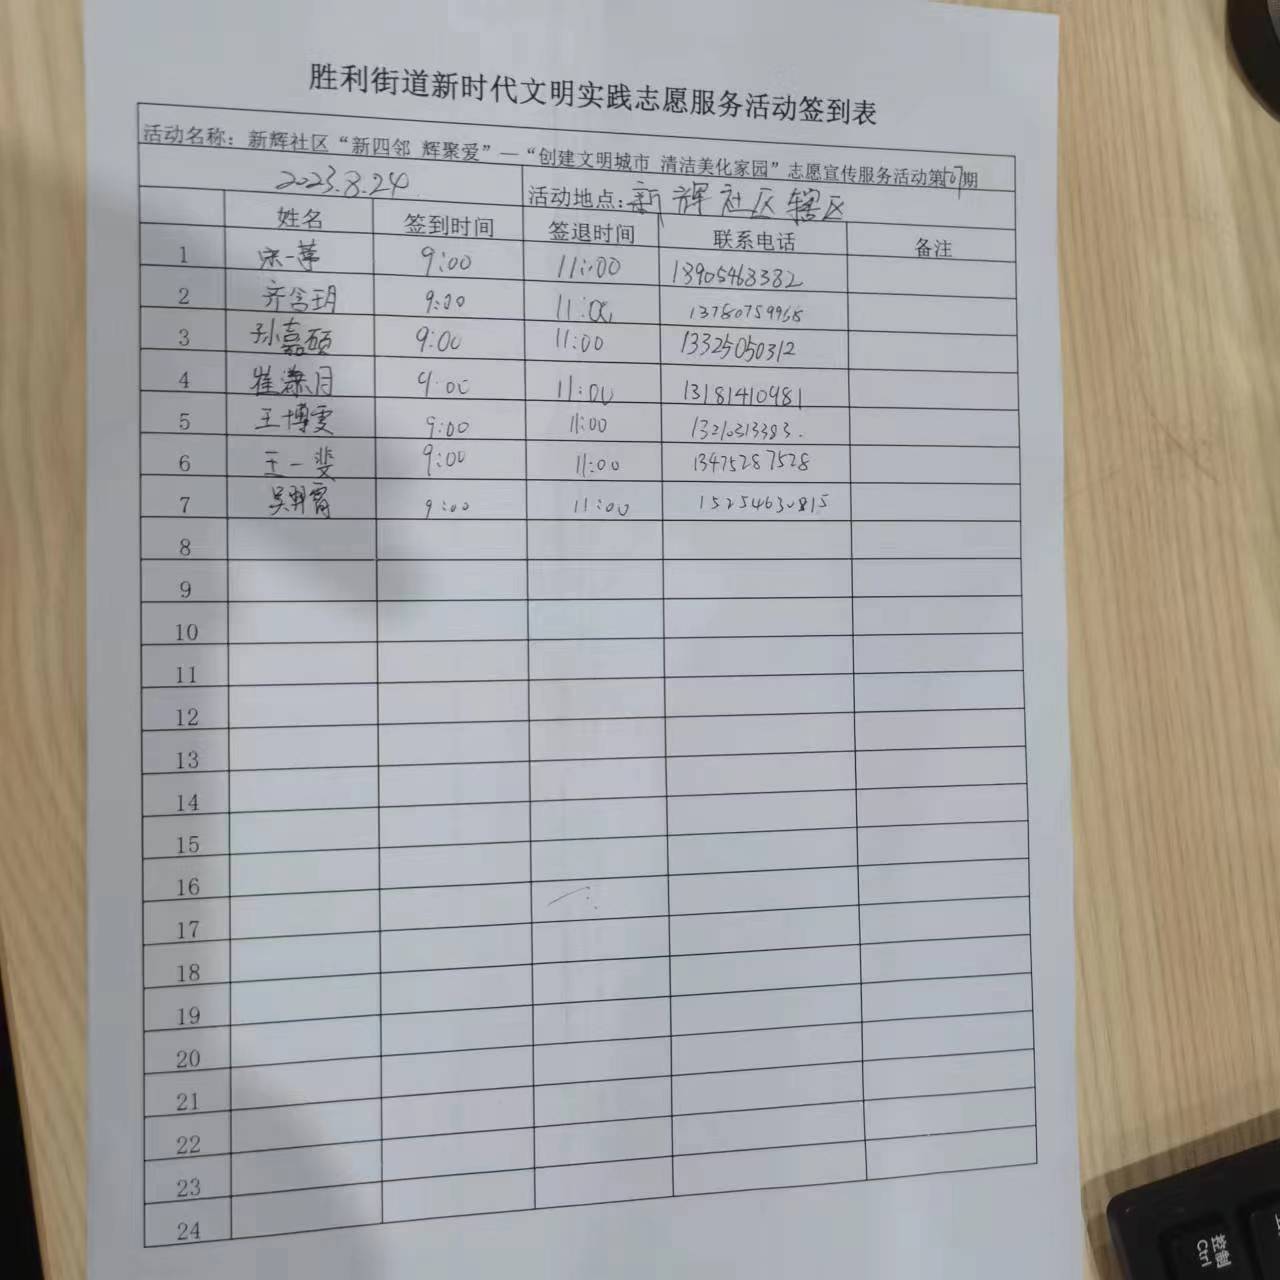 胜利街道新时代文明实践志愿服务活动签到表
活动名称：新辉社区“新四邻 辉聚爱”—“创建文明城市 清洁美化家园”志愿宣传服务活动第107期
2023.8.24 活动地点：新辉社区辖区
姓名 签到时间 签退时间 联系电话 备注
1 宋一萍 9:00 11:00 13905468382
2 齐含玥 9:00 11:00 13780759968
3 孙嘉硕 9:00 11:00 13325050312
4 崔潆月 9:00 11:00 13181410981
5 王博雯 9:00 11:00 13210313383.
6 王一斐 9:00 11:00 13475287528
7 吴羿霄 9:00 11:00 15254630815
8
9
10
11
12
13
14
15
16
17
18
19
20
21
22
23
24
控制
Ctrl